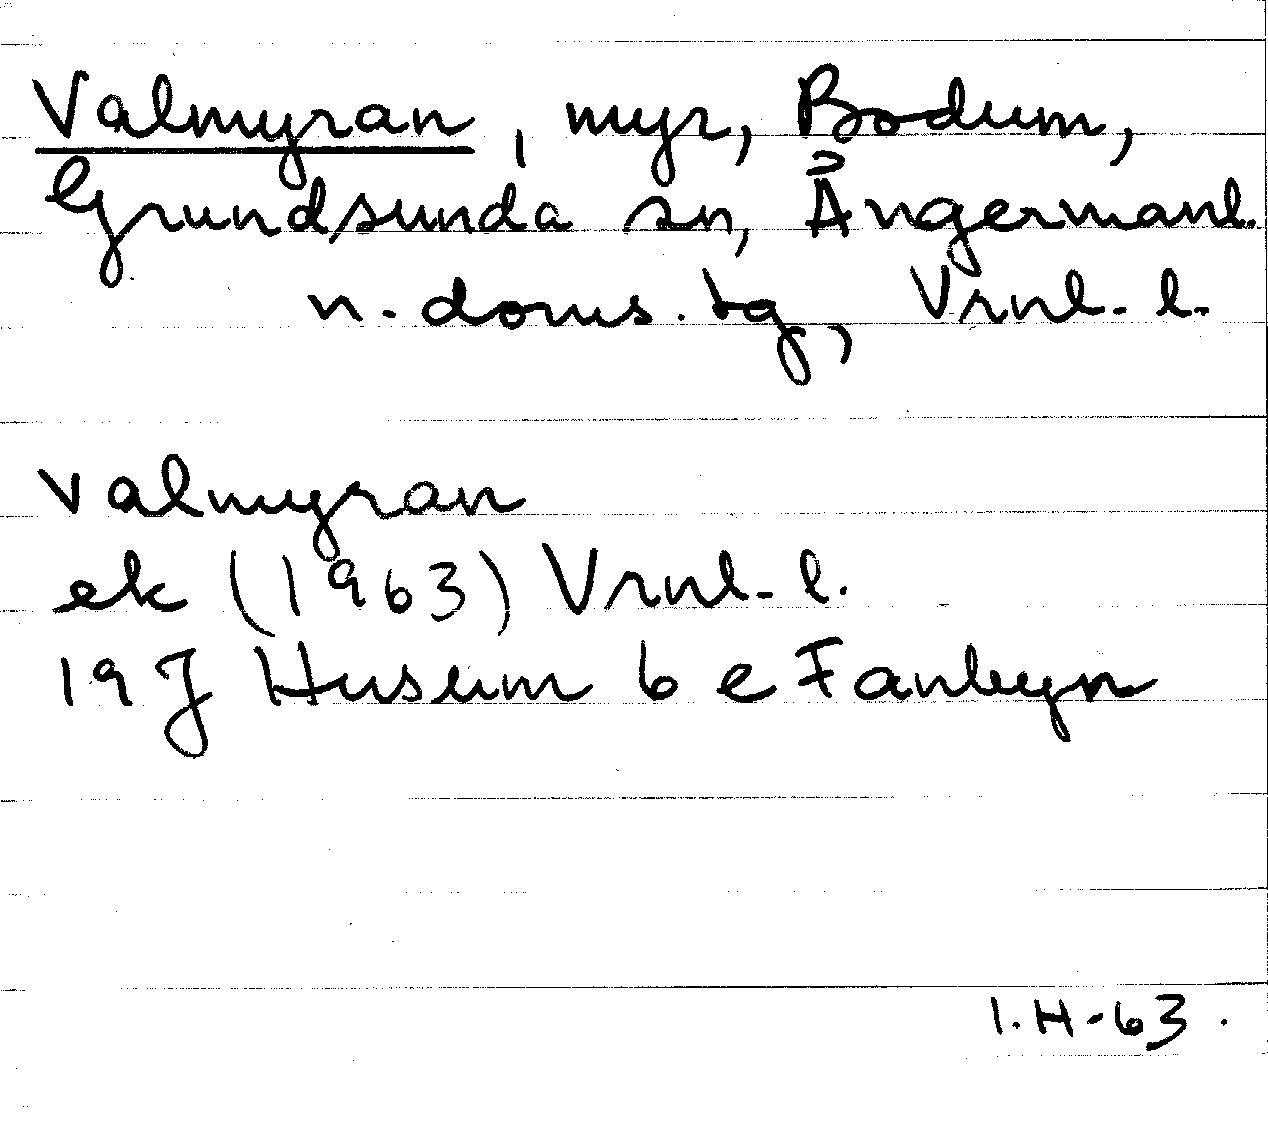 Valmyran, myr, Bodum,
Grundsunda sn, Ångermanl.
n. doms. tg, Vrnl. l.
Valmyran
ek (1963) Vrnl. l.
19J Husum 6 e Fanbyn
I.H-63.